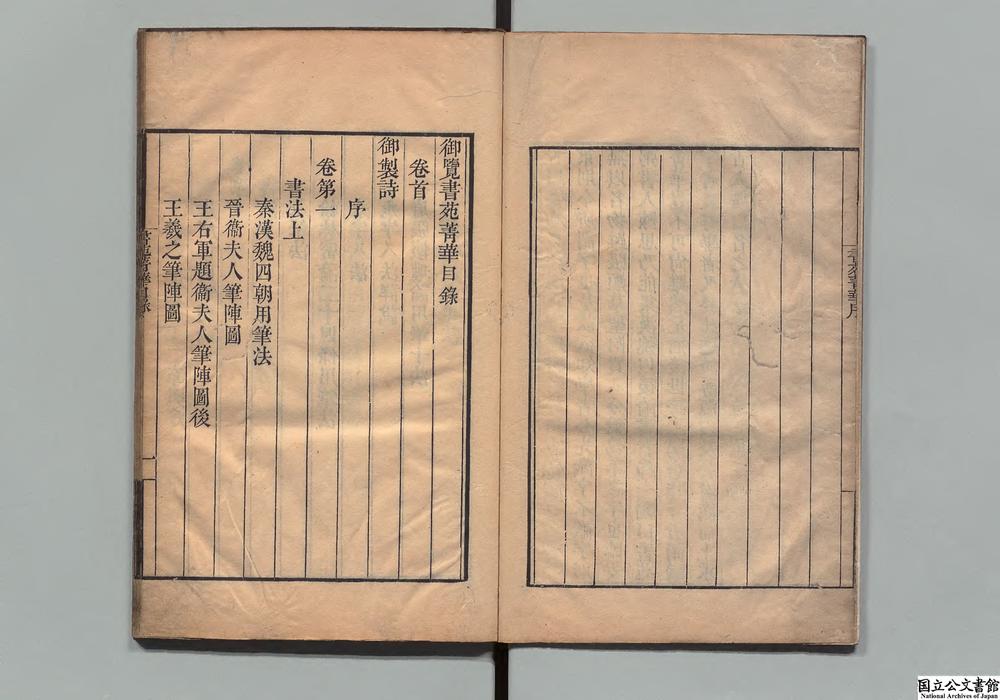 御覽書苑菁華目錄
卷首
御製詩
序
卷第一
書法上
秦漢魏四朝用筆法
晉衞夫人筆陣圖
王右軍題衞夫人筆陣圖後
王羲之筆陣圖
一
国立公文書館
National Archives of Japan